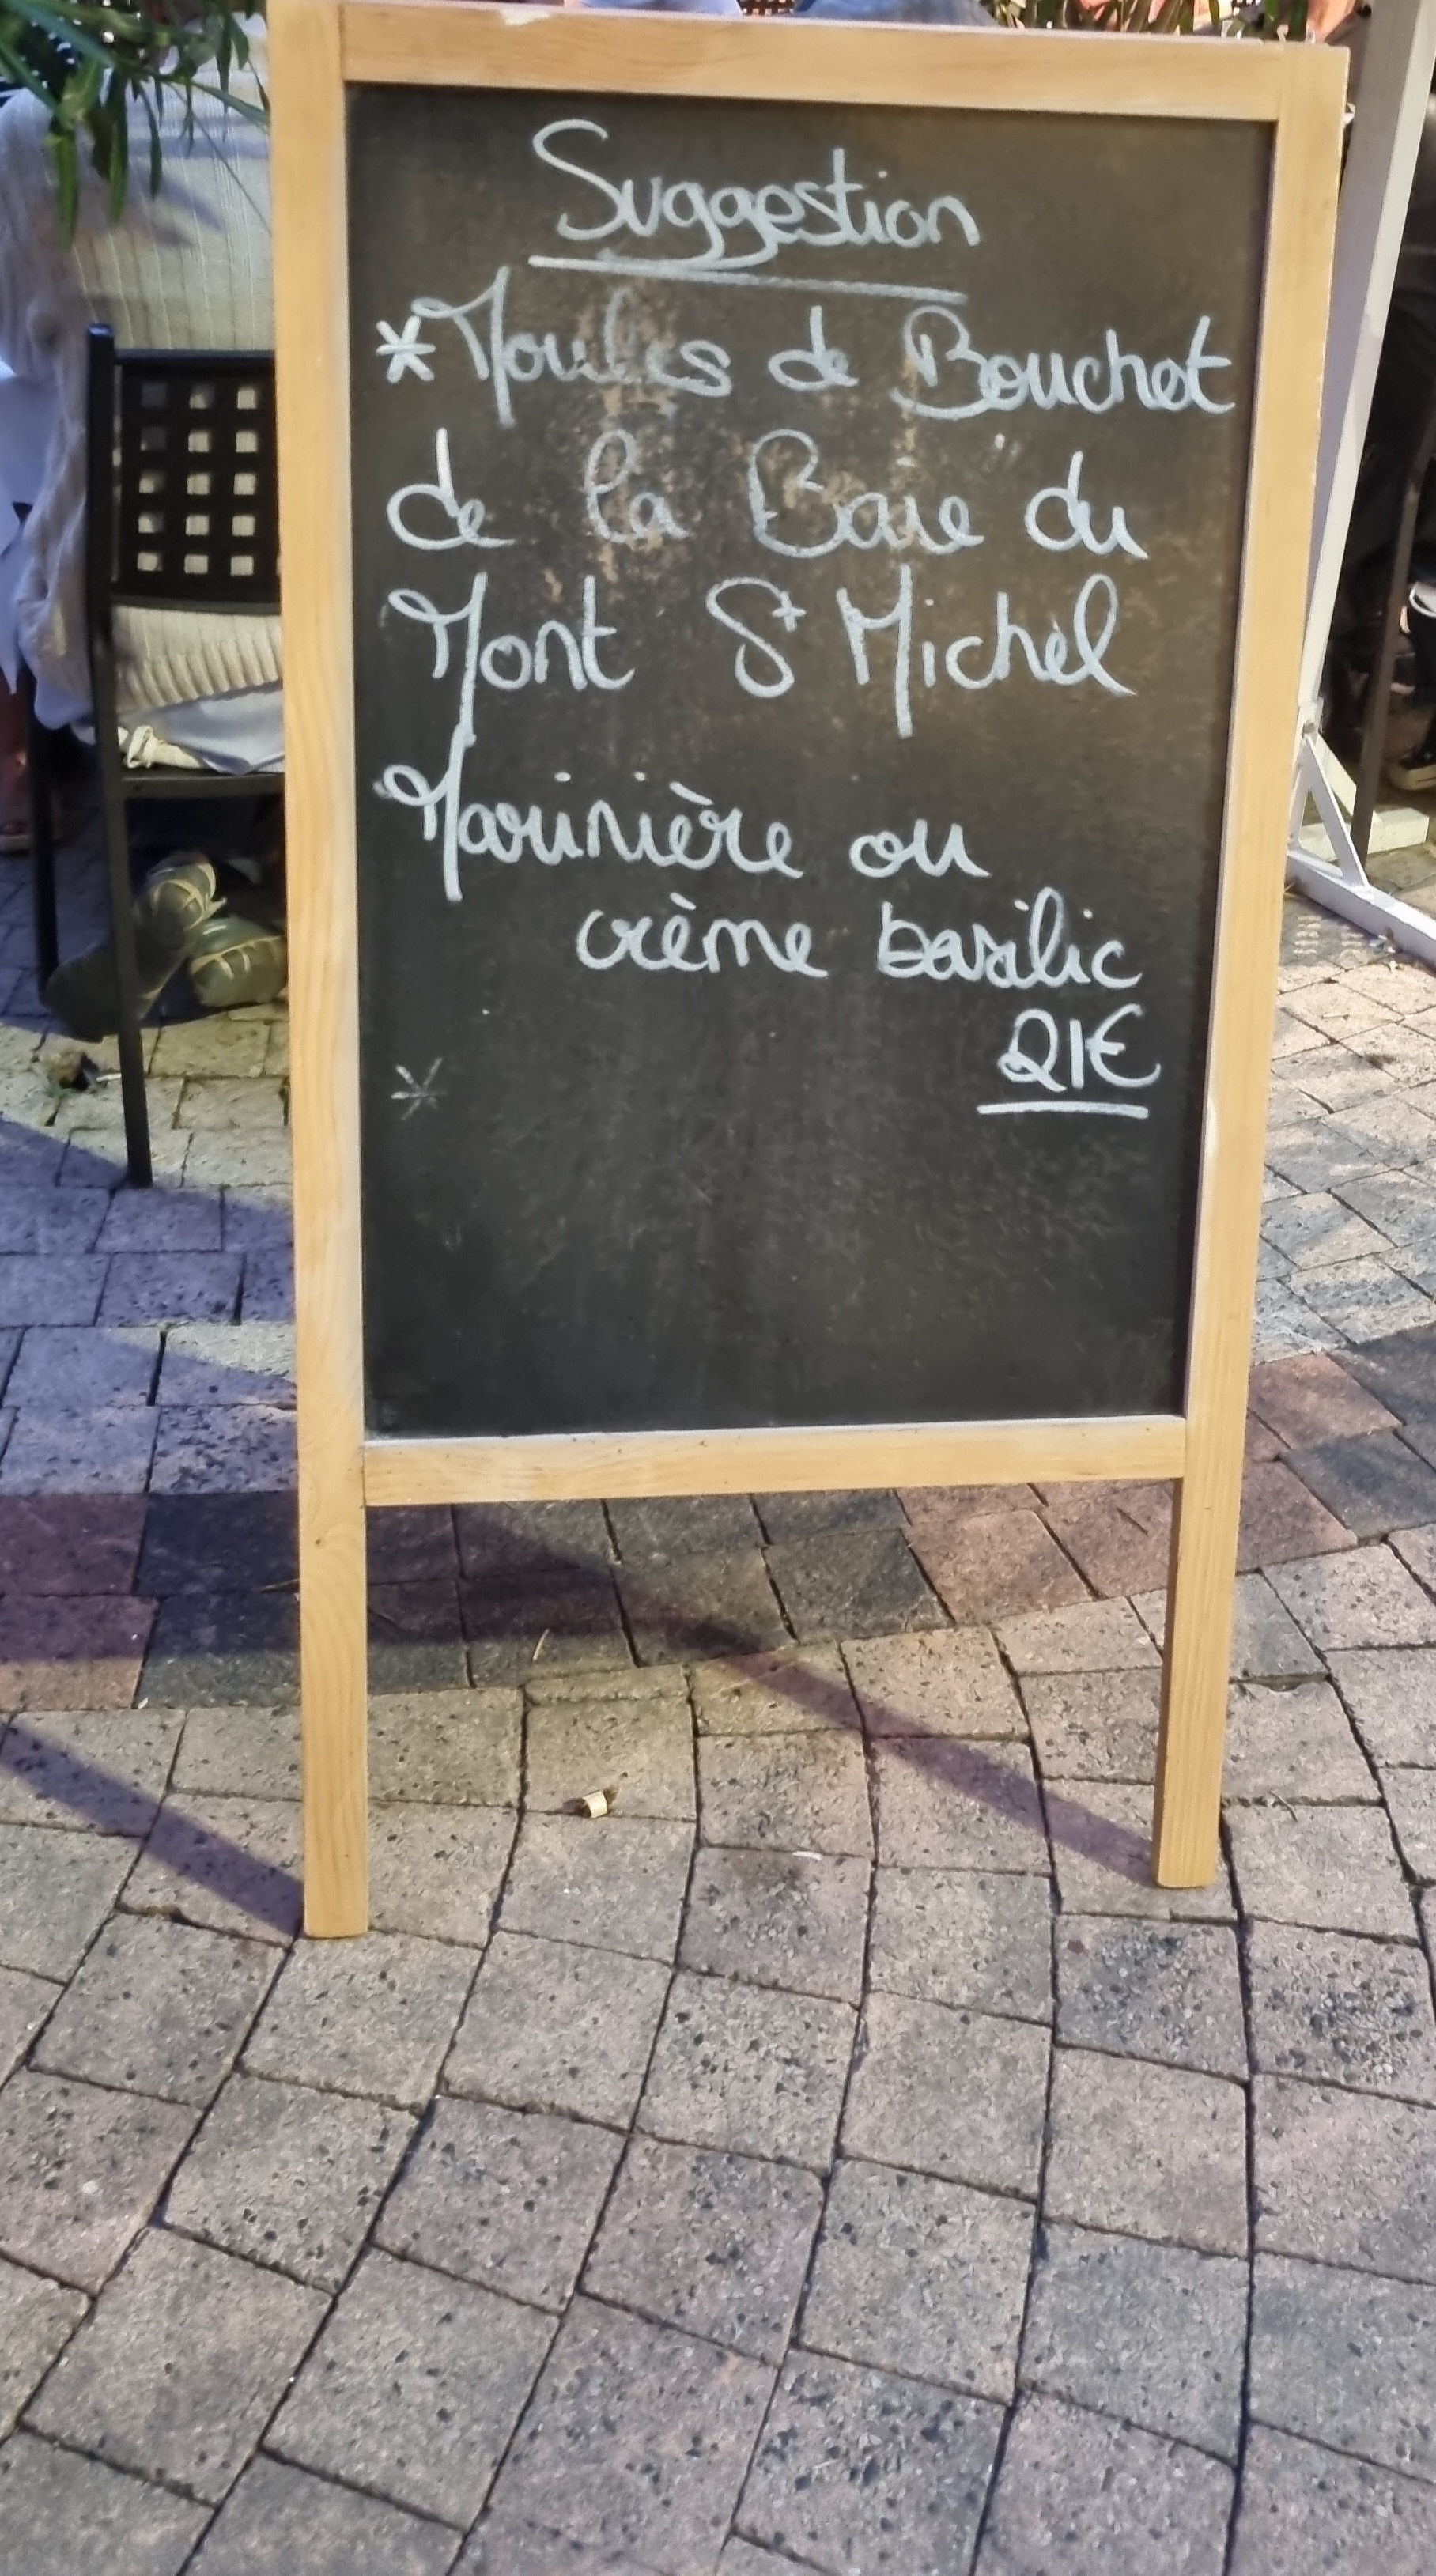 Suggestion
*Moules de Bouchot
de la Baie du
Mont St Michel
Marinière ou
crème basilic
21€
*